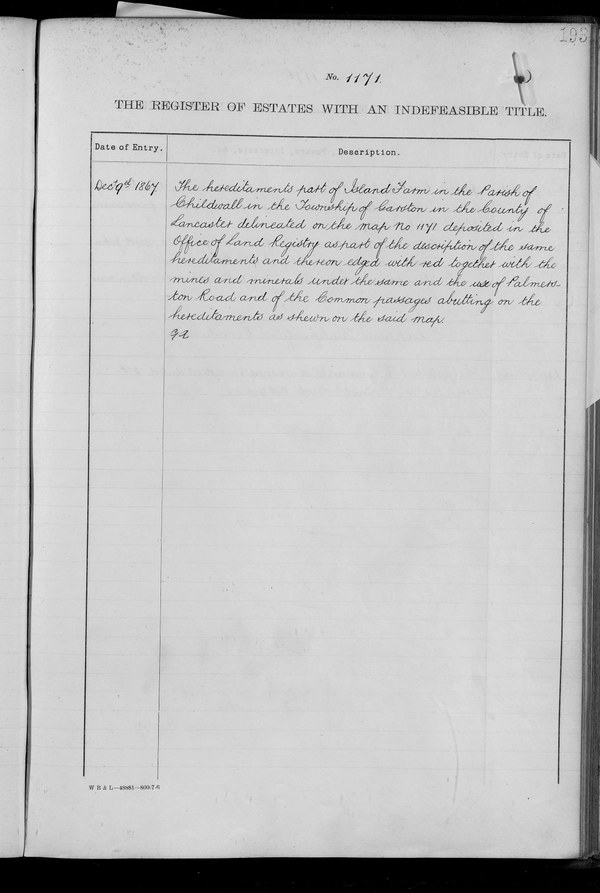 193
No. 1171.
THE REGISTER OF ESTATES WITH AN INDEFEASIBLE TITLE.
Date of Entry.
Description.
Decr 9th 1867
The hereditaments part of Island Farm in the Parish of
Childwall in the Township of Garston in the County of
Lancaster delineated on the map No 1171 deposited in the
Office of Land Registry as part of the description of the same
hereditaments and thereon edged with red together with the
mines and minerals under the same and the use of Palmers-
ton Road and of the Common passages abutting on the
hereditaments as shewn on the said map.
W B & L—49881—800-7-6